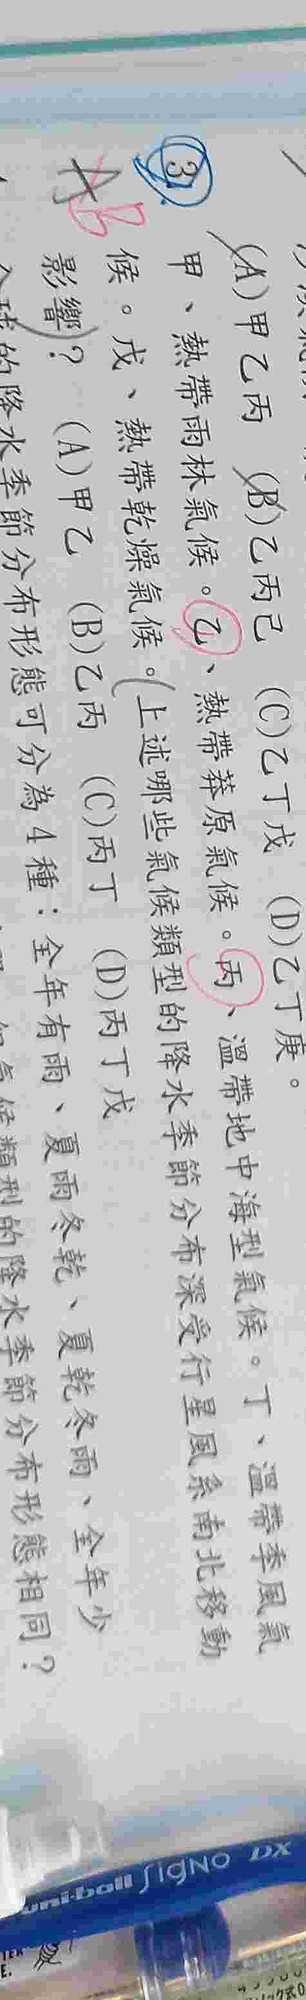 (A)甲乙丙 (B)乙丙己 (C)乙丁戊 (D)乙丁庚。
3. 甲、熱帶雨林氣候。乙、熱帶莽原氣候。丙、溫帶地中海型氣候。丁、溫帶季風氣
候。戊、熱帶乾燥氣候。(上述哪些氣候類型的降水季節分布深受行星風系南北移動
影響)? (A)甲乙 (B)乙丙 (C)丙丁 (D)丙丁戊
A B
的降水季節分布形態可分為4種:全年有雨、夏雨冬乾、夏乾冬雨、全年少
氣候類型的降水季節分布形態相同?
uni-ball SIGNO DX